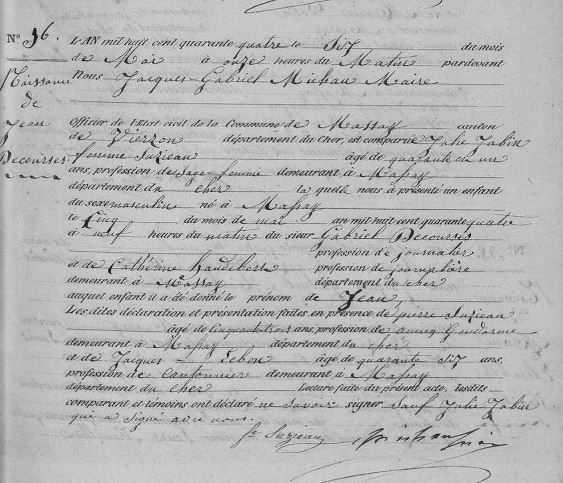 N° 36.
Naissance
de
Jean
Decourses
L'AN mil huit cent quarante quatre le Six du mois
de Mai à onze heures du Matin pardevant
Nous Jacques-Gabriel Michau Maire
Officier de l'Etat civil de la Commune de Massay canton
de Vierzon département du Cher, est comparue Julie Jabin
femme Suzieau âgée de quarante en un
ans, profession de sage-femme demeurant à Massay
département du Cher laquelle nous à présenté un enfant
du sexe masculin né à Massay
le Cinq du mois de mai an mil huit cent quarante quatre
à neuf heures du matin du sieur Gabriel Decourses
profession de journalier
et de Catherine profession de
demeurant à Massay département du cher
auquel enfant il a été donné le prénom de Jean
Les dites déclaration et présentation faites en présence de pierre Suzieau
âgé de Cinquante trois ans, profession de ancien Gendarme
demeurant à Massay département du cher
et de Jacques âge de quarante Six ans,
profession de Cantonnier demeurant à Massay
département du cher Lecture faite du présent acte, lesdits
comparant et témoins ont déclaré ne savoir signer Sauf Julie Jabin
qui a Signé avec nous.
fe Suzieau